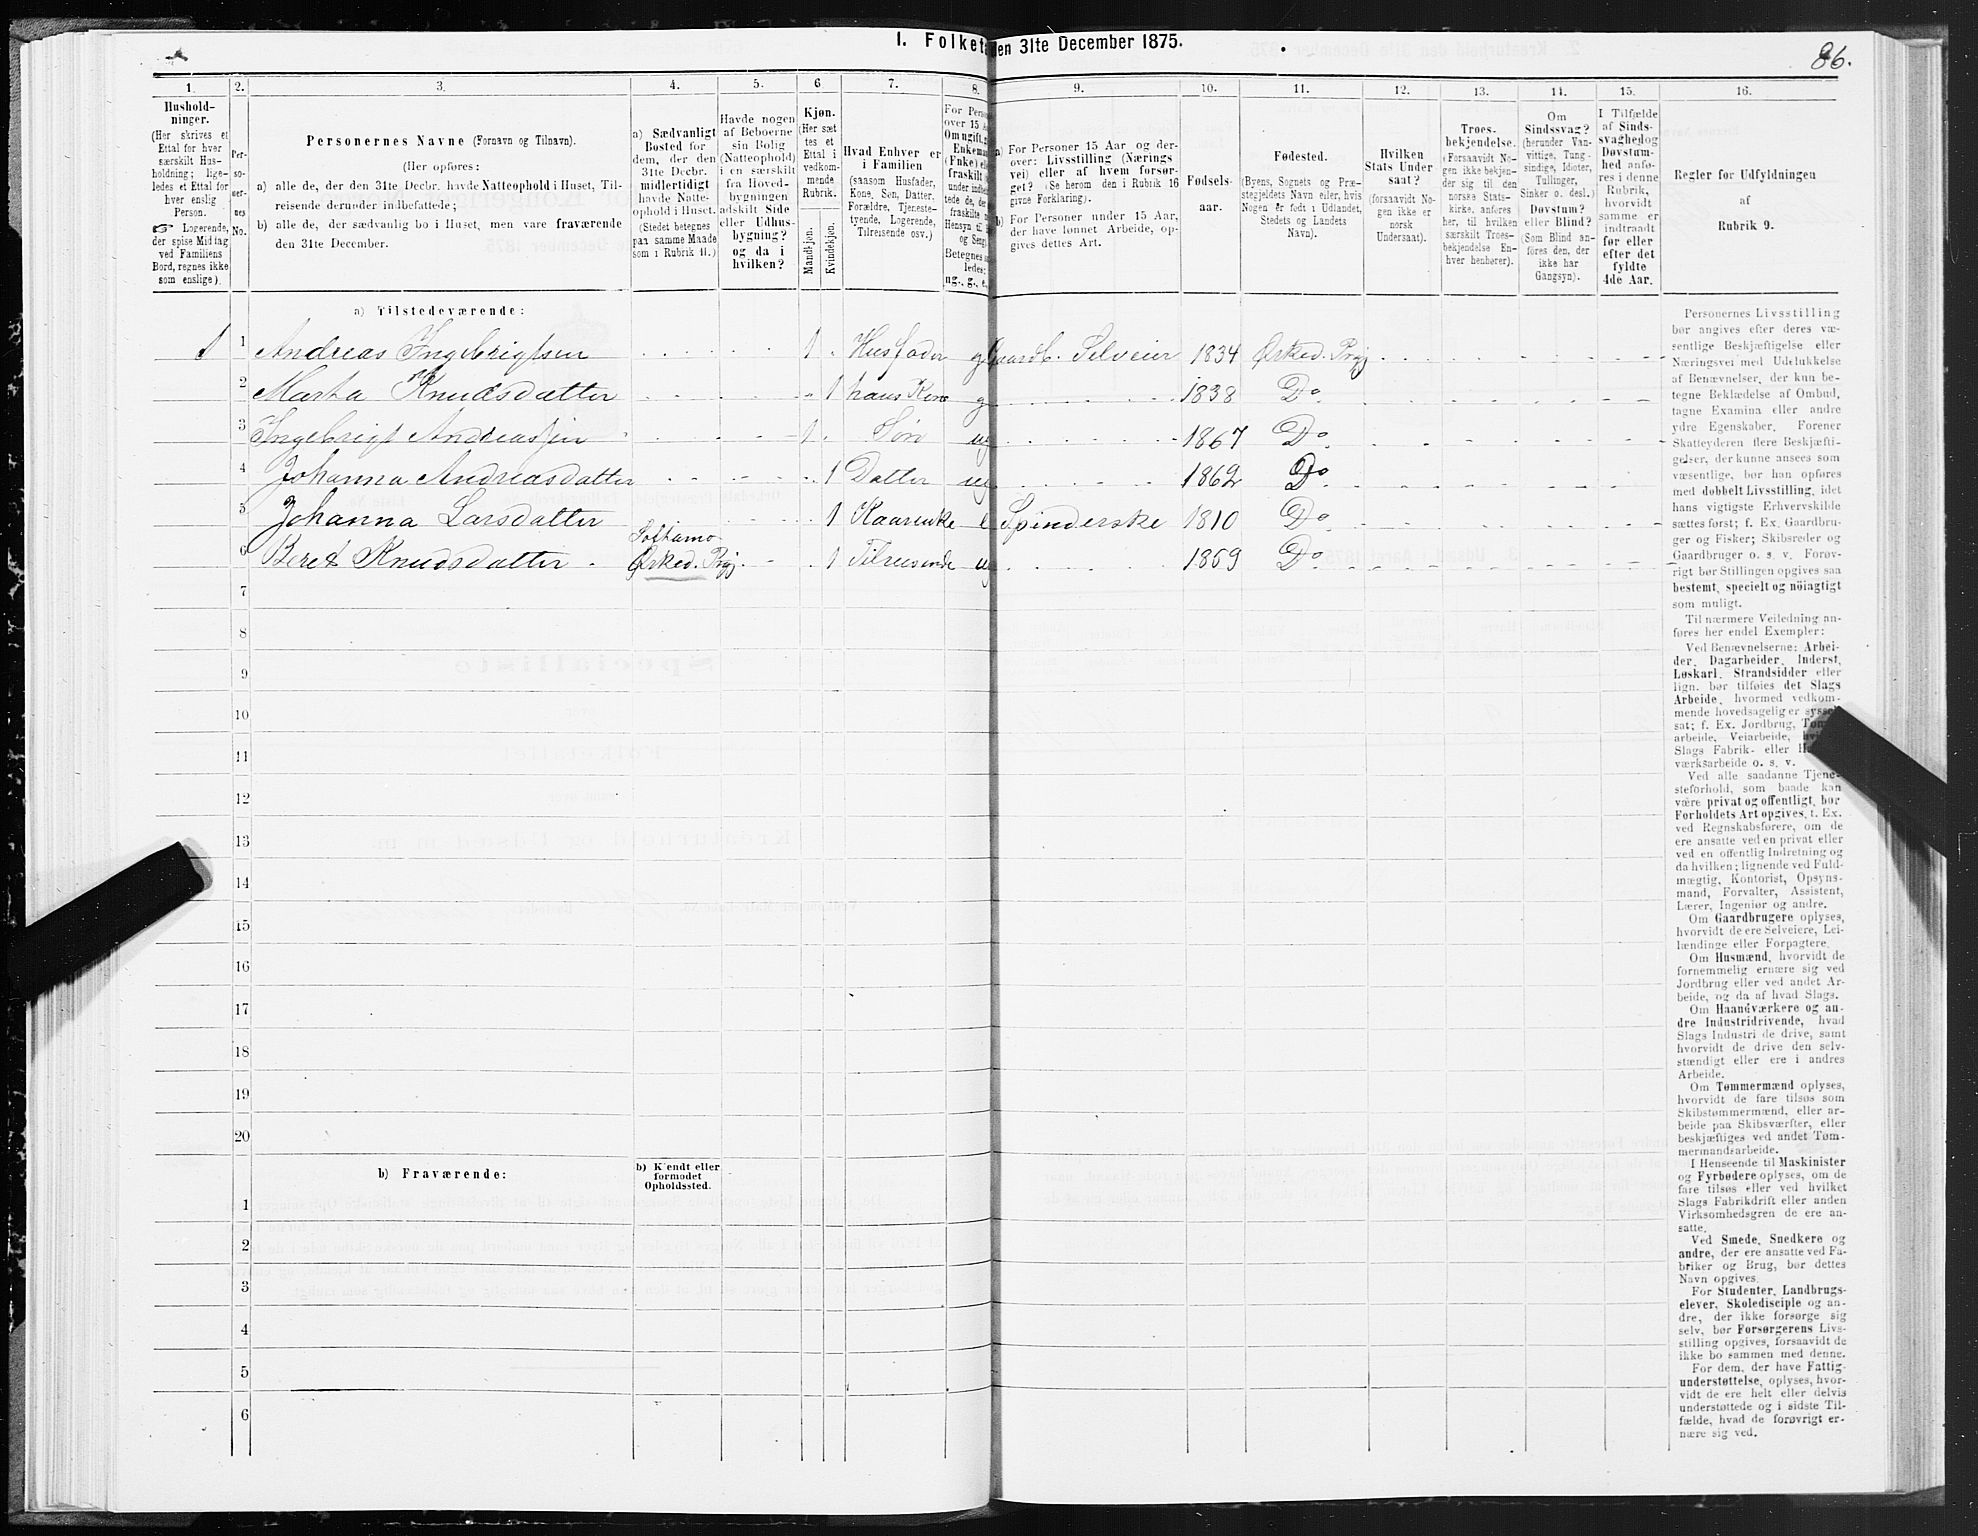 I. Folket den 31te December 1875.
86.
1. 2. 3. 4. 5. 6 7. 8. 9. 10. 11. 12. 13. 14. 15. 16.
Hushold-
ninger.
(Her skrives et
Ettal for hver
særskilt Hus-
holdning; lige-
ledes et Ettal for
hver enslig
Person.
☞ Logerende,
der spise Middag
ved Familiens
Bord, regnes ikke
som enslige).
Per-
so-
ner-
nes
No.
Personernes Navne (Fornavn og Tilnavn).
(Her opføres:
a) alle de, der den 31te Decbr. havde Natteophold i Huset, Til-
reisende derunder indbefattede;
b) alle de, der sædvanlig bo i Huset, men vare fraværende
den 31te December.
a) Sædvanligt
Bosted for
dem, der den
31te Decbr.
midlertidigt
havde Natte-
ophold i Huset.
(Stedet betegnes
paa samme Maade
som i Rubrik 11.)
Havde nogen
af Beboerne
sin Bolig
(Natteophold)
i en særskilt
fra Hoved-
bygningen
adskilt Side
eller Udhus-
bygning?
og da i
hvilken?
Kjøn.
(Her sæt
tes et
Ettal i
vedkom-
mende
Rubrik.
Mandkjøn.
Kvindekjøn.
Hvad Enhver er
i Familien
(saasom Husfader,
Kone, Søn, Datter,
Forældre, Tjeneste-
tyende, Logerende,
Tilreisende osv.)
For Pers
over 15 A
Om ugift, g
Enkema
(Enke) el
fraskilt
under indbe
tede de, der
fraskilte
Hensyn til
og Seng
Betegnes s
ledes:
ug., g., e.
a) For Personer 15 Aar og der-
over: Livsstilling (Nærings
vei) eller af hvem forsør-
get? (Se herom den i Rubrik 16
givne Forklaring).
b) For Personer under 15 Aar,
der have lønnet Arbeide, op-
gives dettes Art.
Fødsels-
aar.
Fødested.
(Byens, Sognets og Præ-
stegjeldets Navn eller, hvis
Nogen er født i Udlandet,
Stedets og Landets
Navn).
Hvilken
Stats Under
saat?
(forsaavidt No-
gen ikke er
norsk
Undersaat).
Troes-
bekjendelse.
(Forsaavidt No-
gen ikke bekjen-
der sig til den
norske Stats-
kirke, anføres
her, til hvilken
særskilt Troes-
bekjendelse En-
hver henhører).
Om
Sindssvag?
(herunder Van-
vittige, Tung-
sindige, Idioter,
Tullinger,
Sinker o. desl.)
Døvstum?
eller Blind?
(Som Blind an-
føres den, der
ikke har
Gangsyn).
I Tilfælde
af Sinds-
svaghed og
Døvstum-
hed anfø-
res i denne
Rubrik,
hvorvidt
samme er
indtraadt
før eller
efter det
fyldte
4de Aar.
Regler for Udfyldningen
af
Rubrik 9.
a) Tilstedeværende:
1 1 Andreas Ingebrigtsen 1 Husfader g Gaardb. Selveier 1834 Ørked. Prgj
2 Marta Knudsdatter 1 hans Kone g 1838 Do
3 Ingebrigt Andreassen 1 Søn ug 1867 Do
4 Johanna Andreasdatter 1 Datter ug 1862 Do
5 Johanna Larsdatter 1 Kaarenke e Spinderske 1810 Do
6 Beret Knudsdatter Ørked. Prgj. 1 Tilreisende ug 1859 Do
7
8
9
10
11
12
13
14
15
16
17
18
19
20
b) Fraværende:
b) Kjendt eller
formodet
Opholdssted.
1
2
3
4
5
6
Personernes Livsstilling
bør angives efter deres væ-
sentlige Beskjæftigelse eller
Næringsvei med Udelukkelse
af Benævnelser, der kun be-
tegne Beklædelse af Ombud,
tagne Examina eller andre
ydre Egenskaber. Forener
Skatteyderen flere Beskjæfti-
gelser, der kunne ansees som
væsentlige, bør han opføres
med dobbelt Livsstilling, idet
hans vigtigste Erhvervskilde
sættes først; f. Ex. Gaardbru-
ger og Fisker; Skibsreder og
Gaardbruger o. s. v. Forøv-
rigt bør Stillingen opgives saa
bestemt, specielt og nöiagtigt
som muligt.
Til nærmere Veiledning an-
føres her endel Exempler:
Ved Benævnelserne: Arbei-
der, Dagarbeider, Inderst,
Løskarl, Strandsidder eller
lign. bør tilføies det Slags
Arbeide, hvormed vedkom-
mende hovedsagelig er syssel
sat; f. Ex. Jordbrug, Tøm
arbeide, Veiarbeide,
Slags Fabrik- eller
værksarbeide o. s. v.
Ved alle saadanne Tjene-
steforhold, som baade kan
være privat og offentligt, bør
Forholdets Art opgives, t. Ex.
ved Regnskabsførere, om de
ere ansatte ved en privat eller
ved en offentlig Indretning og
da hvilken; lignende ved Fuld-
mægtig, Kontorist, Opsyns-
mand, Forvalter, Assistent,
Lærer, Ingeniør og andre.
Om Gaardbrugere oplyses,
hvorvidt de ere Selveiere, Lei-
lændinge eller Forpagtere.
Om Husmænd, hvorvidt de
fornemmelig ernære sig ved
Jordbrug eller ved andet Ar-
beide, og da af hvad Slags.
Om Haandværkere og an-
dre Industridrivende, hvad
Slags Industri de drive, samt
hvorvidt de drive den selv-
stændigt eller ere i andres
Arbeide.
Om Tømmermænd oplyses,
hvorvidt de fare tilsøs som
Skibstømmermænd, eller ar-
beide paa Skibsværfter, eller
beskjæftiges ved andet Tøm-
mermandsarbeide.
I Henseende til Maskinister
og Fyrbødere oplyses, om de
fare tilsøs eller ved hvilket
Slags Fabrikdrift eller anden
Virksomhedsgren de ere an-
satte.
Ved Smede, Snedkere og
andre, der ere ansatte ved Fa-
briker og Brug, bør dettes
Navn opgives.
For Studenter, Landbrugs-
elever, Skoledisciple og an-
dre, der ikke forsørge sig
selv, bør Forsørgerens Livs-
stilling opgives, forsaavidt de
ikke bo sammen med denne.
For dem, der have Fattig-
understøttelse, oplyses, hvor-
vidt de ere helt eller delvis
understøttede og i sidste Til-
fælde, hvad de forøvrigt er-
nære sig ved.